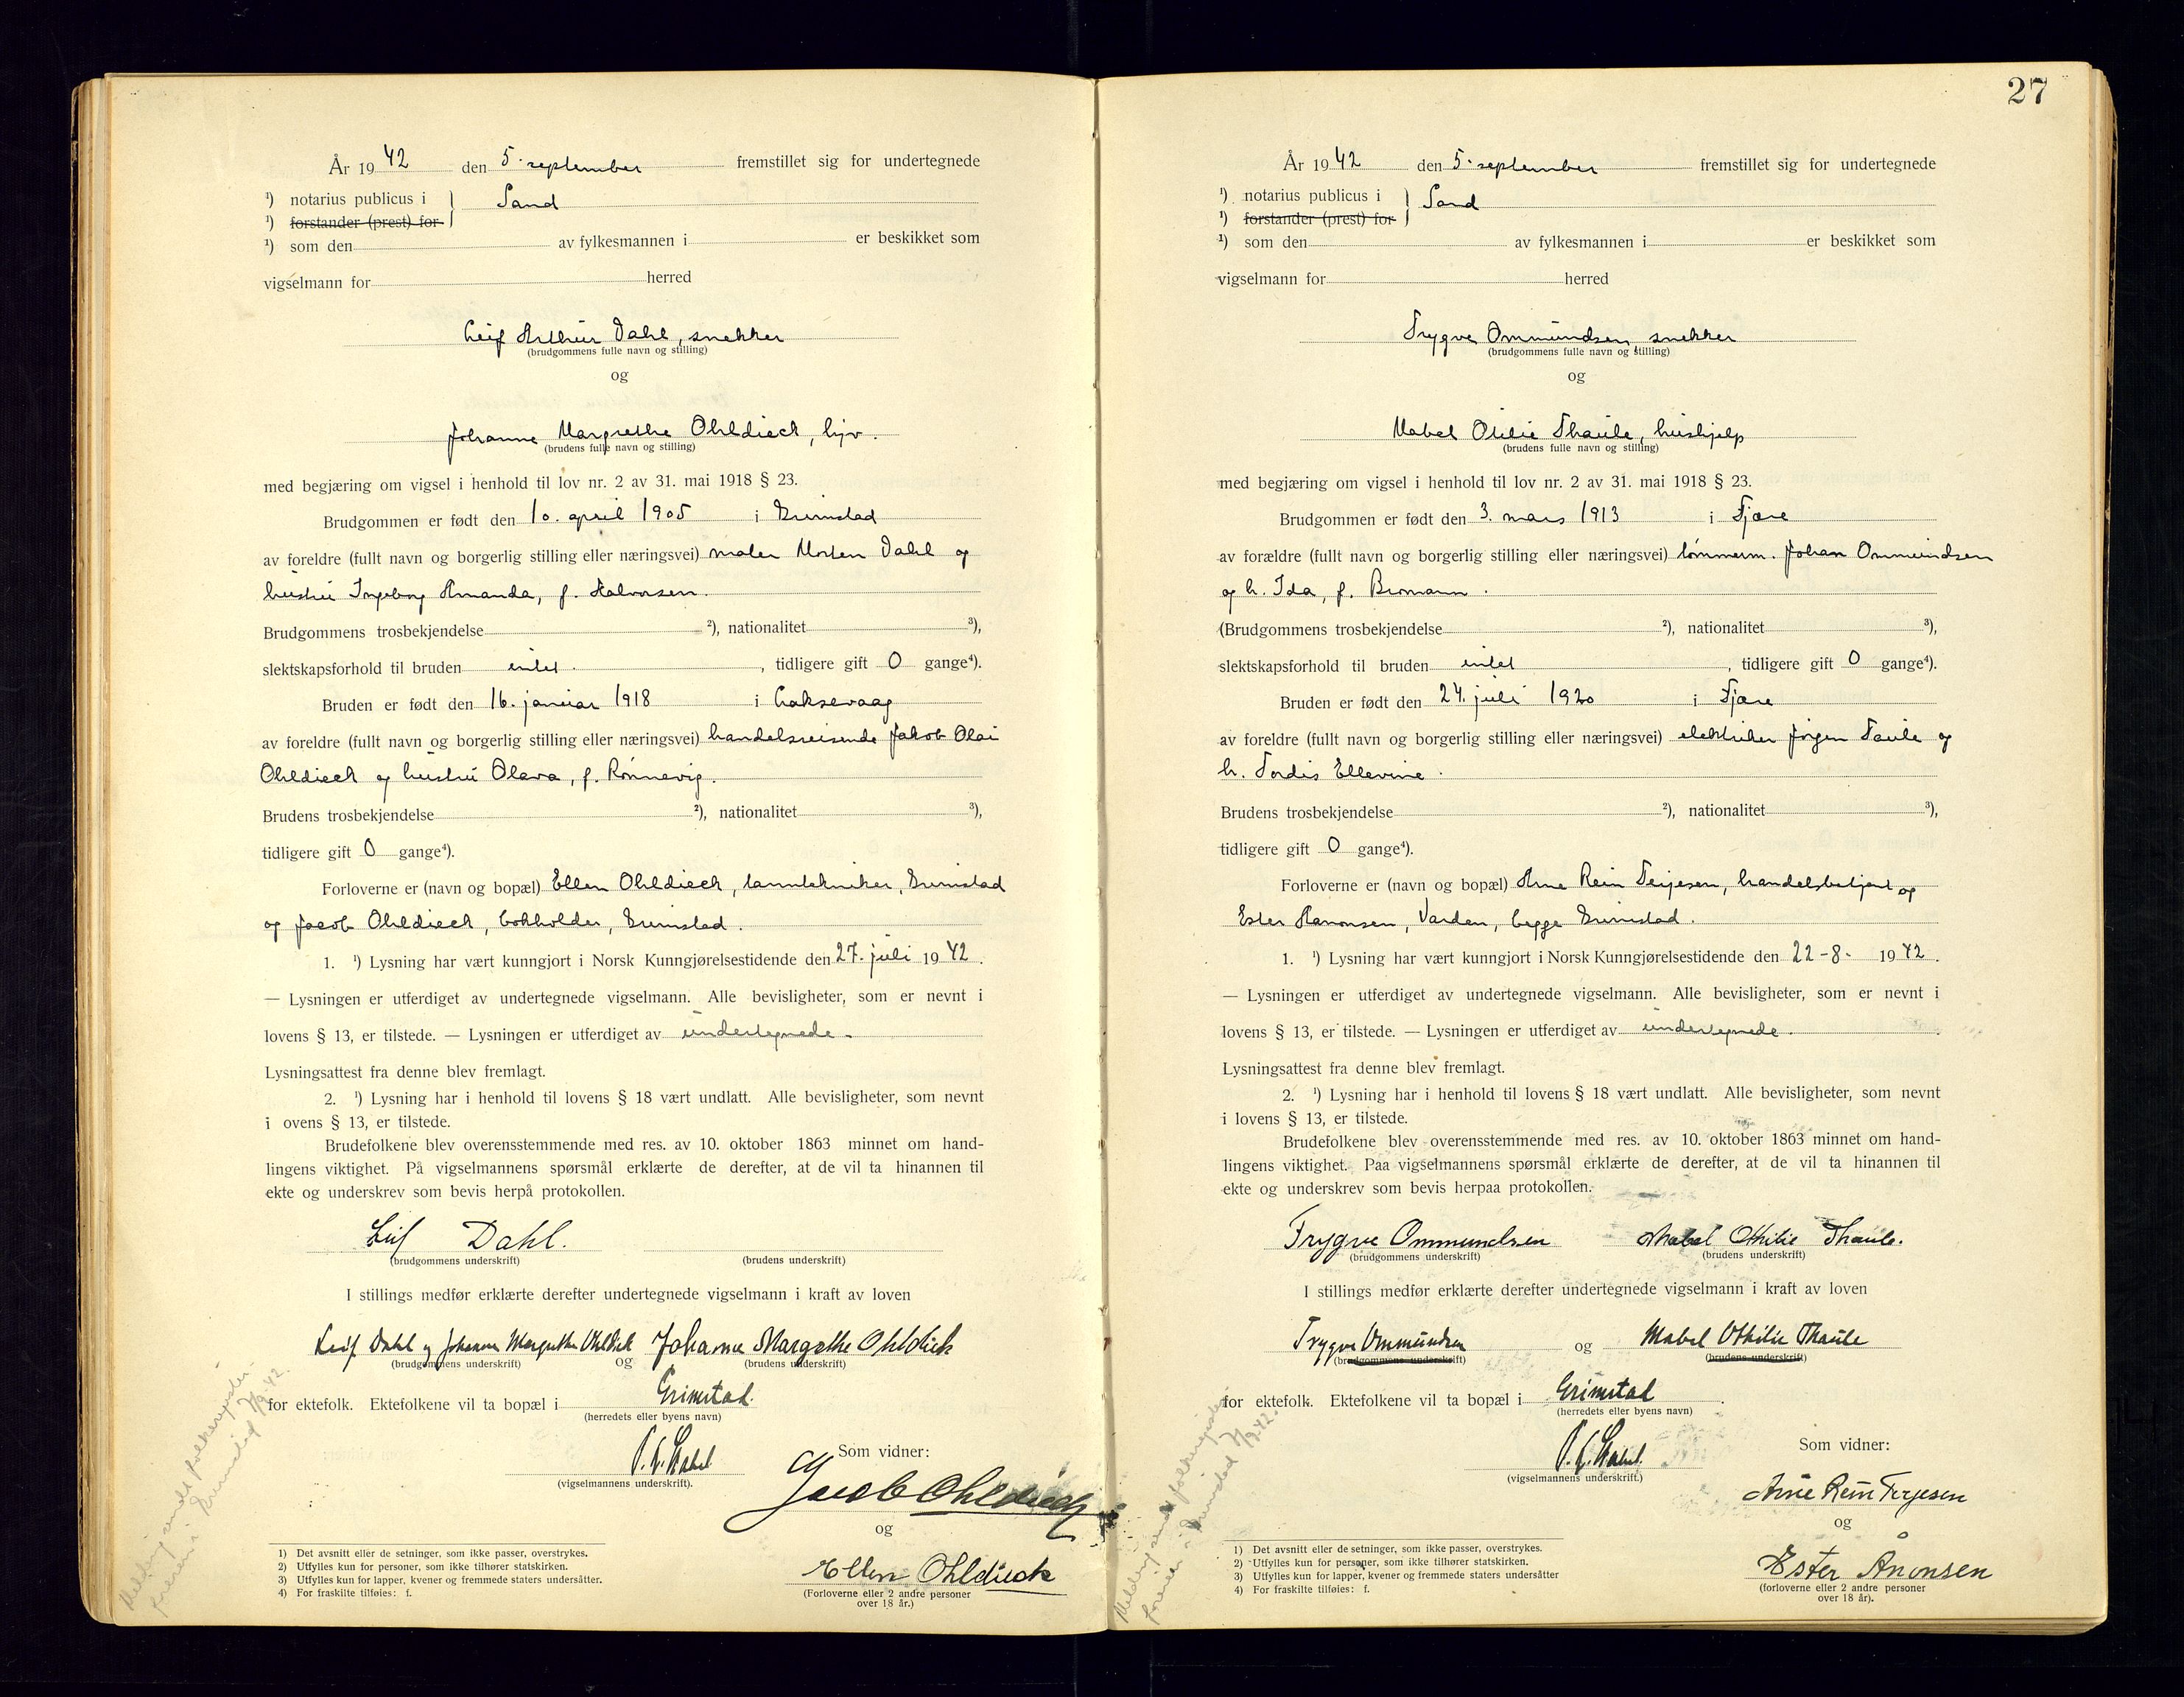 År 1942 den 5. september fremstillet sig for undertegnede
¹) notarius publicus i } Sand
¹) forstander (prest) for
¹) som den av fylkesmannen i er beskikket som
vigselmann for herred
Leif Arthur Dahl, snekker
(brudgommens fulle navn og stilling)
og
Johanne Margrethe Ohldieck, hjv.
(brudens fulle navn og stilling)
med begjæring om vigsel i henhold til lov nr. 2 av 31. mai 1918 § 23.
Brudgommen er født den 10. april 1905 i Grimstad
av foreldre (fullt navn og borgerlig stilling eller næringsvei) maler Morten Dahl og
hustru Ingeborg Amanda, f. Halvorsen.
Brudgommens trosbekjendelse ²), nationalitet ³),
slektskapsforhold til bruden intet. , tidligere gift 0 gange⁴).
Bruden er født den 16. januar 1918 i Laksevaag
av foreldre (fullt navn og borgerlig stilling eller næringsvei) handelsreisende Jakob Olai
Ohldieck og hustru Olava, f. Rønnevig.
Brudens trosbekjendelse ²), nationalitet ³),
tidligere gift 0 gange⁴).
Forloverne er (navn og bopæl) Ellen Ohldieck, tanntekniker, Grimstad
og Jacob Ohldieck, bokholder, Grimstad.
1. ¹) Lysning har vært kunngjort i Norsk Kunngjørelsestidende den 27. juli 1942.
— Lysningen er utferdiget av undertegnede vigselmann. Alle bevisligheter, som er nevnt i
lovens § 13, er tilstede. — Lysningen er utferdiget av undertegnede.
Lysningsattest fra denne blev fremlagt.
2. ¹) Lysning har i henhold til lovens § 18 vært undlatt. Alle bevisligheter, som nevnt
i ovens § 13, er tilstede.
Brudefolkene blev overensstemmende med res. av 10. oktober 1863 minnet om hand-
lingens viktighet. På vigselmannens spørsmål erklærte de derefter, at de vil ta hinannen til
ekte og underskrev som bevis herpå protokollen.
Leif Dahl.
(brudgommens underskrift) (brudens underskrift)
I stillings medfør erklærte derefter undertegnede vigselmann i kraft av loven
Leif Dahl og Johanne Margrethe Ohldieck Johanne Margrethe Ohldieck
(brudgommens underskrift) og (brudens underskrift)
for ektefolk. Ektefolkene vil ta bopæl i Grimstad.
(herredets eller byens navn)
(vigselmannens underskrift).
Som vidner:
Jacob Ohldieck
og
Ellen Ohldieck
(Forloverne eller 2 andre personer
over 18 år.)
1) Det avsnitt eller de setninger, som ikke passer, overstrykes.
2) Utfylles kun for personer, som ikke tilhører statskirken.
3) Utfylles kun for lapper, kvener og fremmede staters undersåtter.
4) For fraskilte tilføies: f.
Melding sendt folkeregister
i Grimstad 7/9.42.
27
År 1942 den 5. september fremstillet sig for undertegnede
¹) notarius publicus i } Sand
¹) forstander (prest) for
¹) som den av fylkesmannen i er beskikket som
vigselmann for herred
Trygve Ommundsen, snekker
(brudgommens fulle navn og stilling)
og
Mabel Otilie Thaule, hushjelp
(brudens fulle navn og stilling)
med begjæring om vigsel i henhold til lov nr. 2 av 31. mai 1918 § 23.
Brudgommen er født den 3. mars 1913 i Fjære
av forældre (fullt navn og borgerlig stilling eller næringsvei) tømmerm. Johan Ommundsen
og h. Ida, f. Bromann.
(Brudgommens trosbekjendelse ²), nationalitet ³),
slektskapsforhold til bruden intet , tidligere gift 0 gange⁴).
Bruden er født den 24. juli 1920 i Fjære
av foreldre (fullt navn og borgerlig stilling eller næringsvei) elektriker Jørgen Taule og
h. Tordis Ellevine.
Brudens trosbekjendelse ²), nationalitet ³),
tidligere gift 0 gange⁴).
Forloverne er (navn og bopæl) Arne Rein Terjesen, handelsbetjent og
Ester Aanonsen, Varden, begge Grimstad.
1. ¹) Lysning har vært kunngjort i Norsk Kunngjørelsestidende den 22-8- 1942.
— Lysningen er utferdiget av undertegnede vigselmann. Alle bevisligheter, som er nevnt i
lovens § 13, er tilstede. — Lysningen er utferdiget av undertegnede.
Lysningsattest fra denne blev fremlagt.
2. ¹) Lysning har i henhold til lovens § 18 vært undlatt. Alle bevisligheter, som nevnt
i lovens § 13, er tilstede.
Brudefolkene blev overensstemmende med res. av 10. oktober 1863 minnet om hand-
lingens viktighet. Paa vigselmannens spørsmål erklærte de derefter, at de vil ta hinannen til
ekte og underskrev som bevis herpaa protokollen.
Trygve Ommundsen Mabel Othilie Thaule.
(brudgommens underskrift) (brudens underskrift)
I stillings medfør erklærte derefter undertegnede vigselmann i kraft av loven
Trygve Ommundsen og Mabel Othilie Thaule
(brudgommens underskrift) (brudens underskrift)
for ektefolk. Ektefolkene vil ta bopæl i Grimstad.
(herredets eller byens navn)
(vigselmannens underskrift.)
Som vidner:
Arne Rein Terjesen
og
Ester Ånonsen
(forloverne eller 2 andre personer
over 18 år).
1) Det avsnitt eller de setninger, som ikke passer, overstrykes.
2) Utfylles kun for personer, som ikke tilhører statskirken.
3) Utfylles kun for lapper, kvener og fremmede staters undersåtter
4) For fraskilte tilføies: f.
Melding sendt folkeregister
i Grimstad 7/9.42.